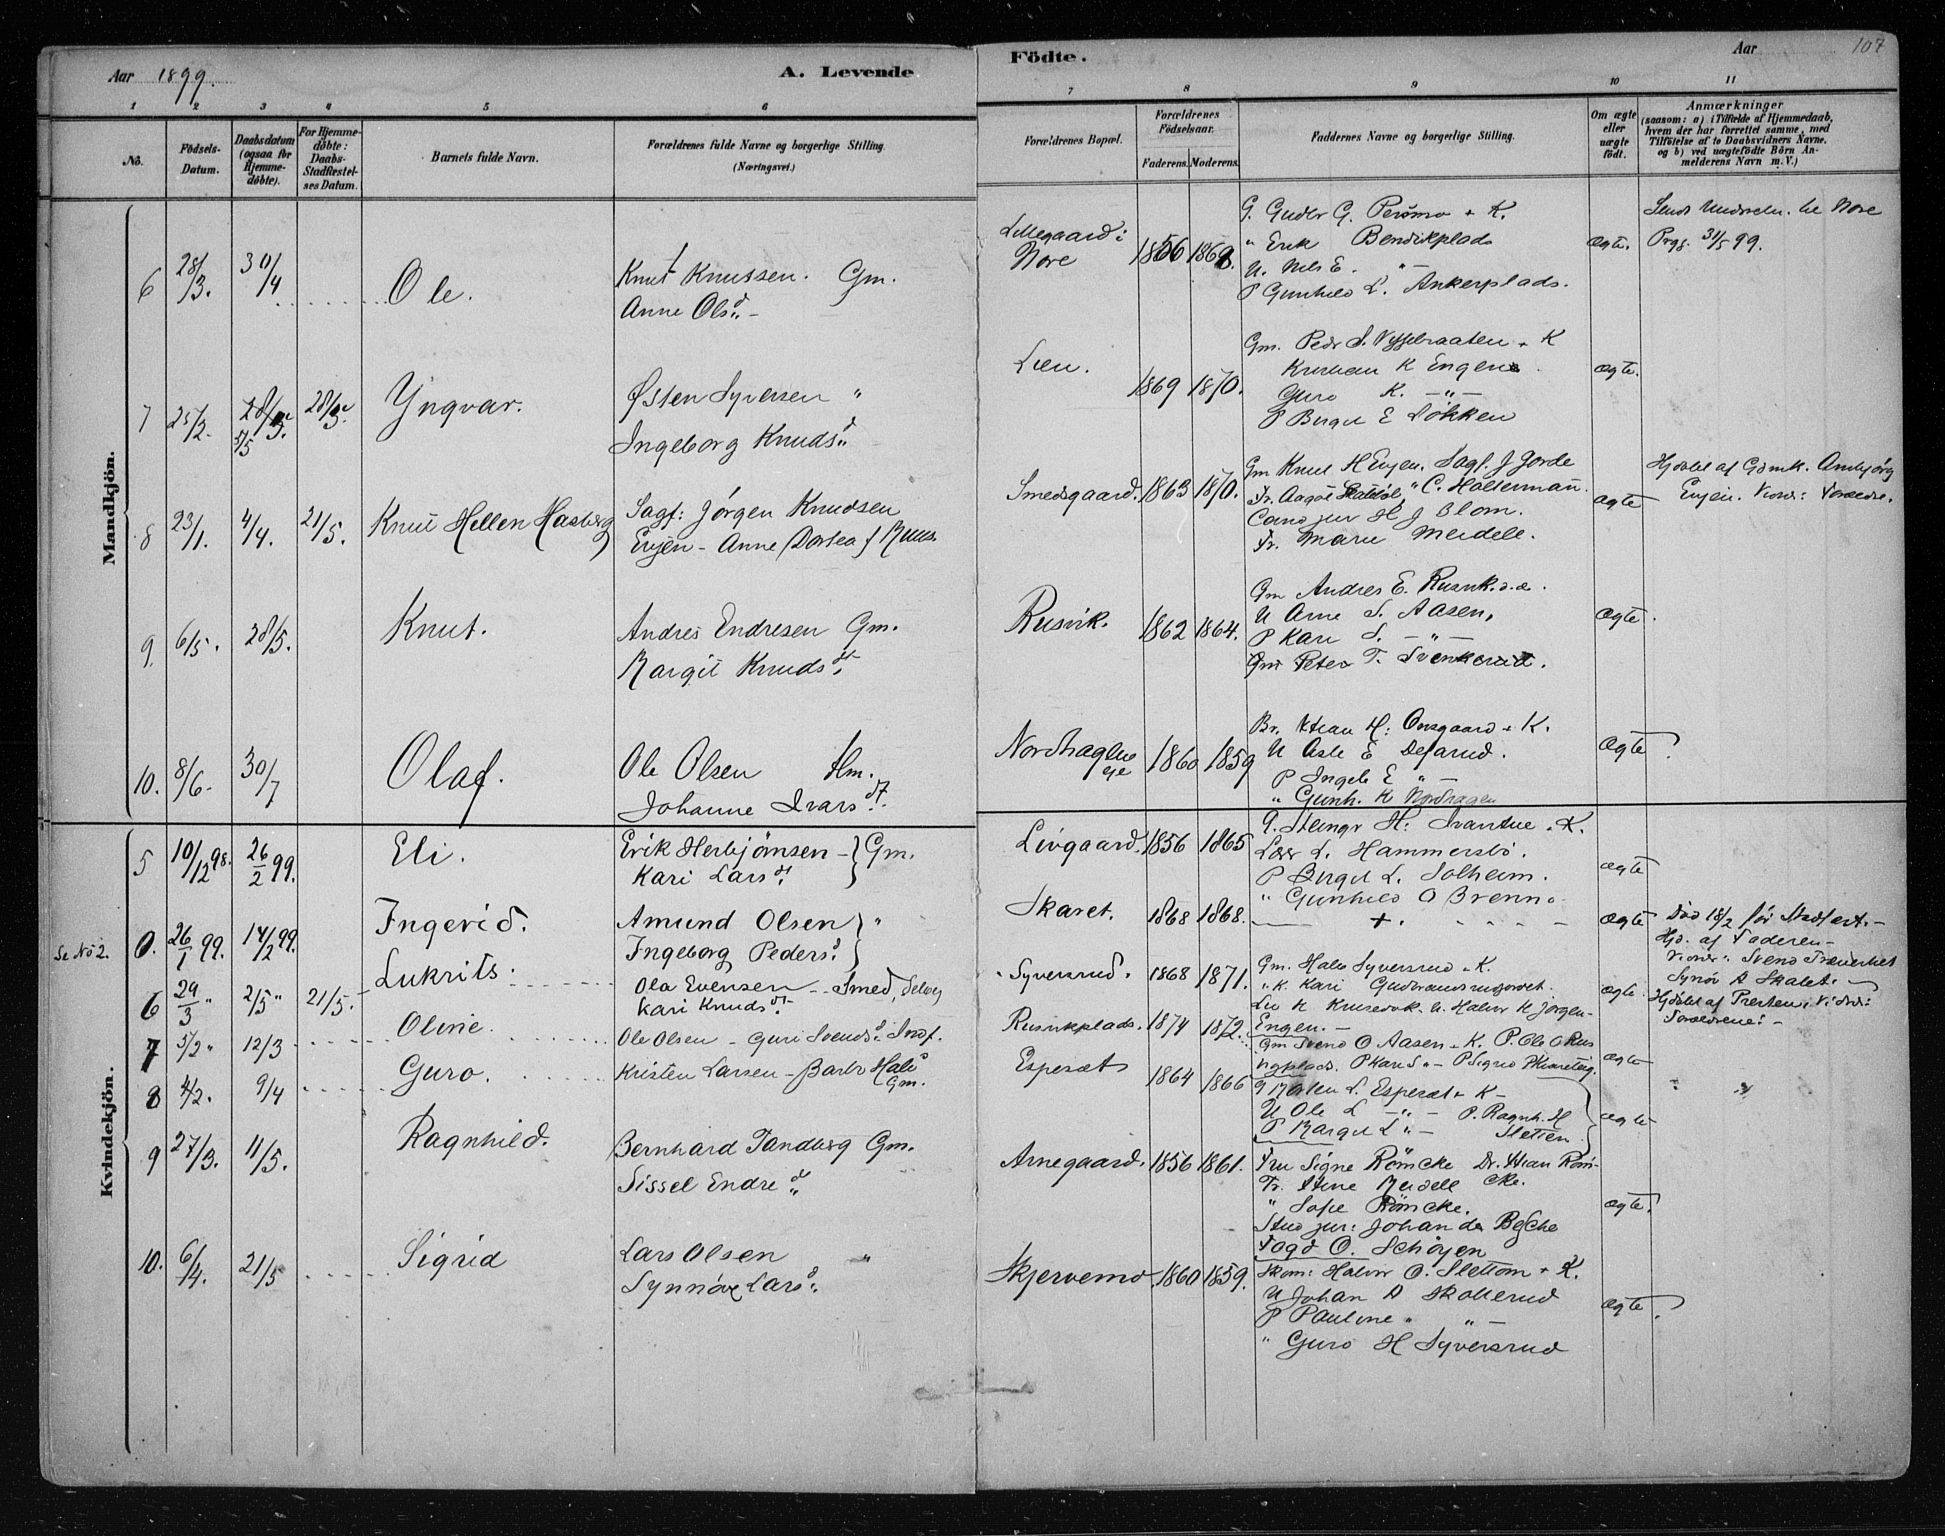 Aar 1899.
A. Levende
Födte.
Aar
107
1 2 3 4 5 6 7 8 9 10 11
No.
Födsels-Datum.
Daabsdatum (ogsaa for Hjemme-döbte).
For Hjemme-döbte: Daabs-Stadfæstel-ses Datum.
Barnets fulde Navn.
Forældrenes fulde Navne og borgerlige Stilling.
(Næringsvei.)
Forældrenes Bopæl.
Forældrenes Födselsaar.
Faderens. Moderens.
Faddernes Navne og borgerlige Stilling.
Om ægte eller uægte födt.
Anmærkninger
(saasom: a) i Tilfælde af Hjemmedaab,
hvem der har forrettet samme, med
Tilföielse af to Daabsvidners Navne,
og b) ved uægtefödte Börn An-
melderens Navn m. V.)
Mandkjön.
6 28/3. 30/4 Ole. Knut Knussen. Gm.
Anne Olsd.
Nore 1856 1868.
G. Gudbr G. + K.
" Erik Bendikplads
U. Nils E. "
P Gunhild L. Ankerplads.
ægte.
Nore
31/5 99.
7 25/2. 5/5 Yngvar. Østen Syversen "
Ingeborg Knudsd
Lien. 1869 1870.
Gm. Peder S. + K
K Engen
Guro K. —"—
P Birgit E Løkken
ægte.
8 23/1. 4/4. 21/5. Knut Hellen Hasberg
Sagf: Jørgen Knudsen
Evjen - Anne Dortea f
Smedsgaard. 1863 1870.
Gm Knut H Evjen. Sagf. J Gorde
C. Holtermann.
Cand jur H J Blom.
Fr. Marie Meidell.
ægte
Hjdøbt af Gdmk. Anbjørg
Evjen. Vidner: Foreldre.
9. 6/5. 28/5. Knut. Andres Endresen Gm.
Margit Knudsdt.
Rusvik. 1862 1864.
Gm Andres E. Rusvik.
U Arne S. Aasen,
P Kari S. —"—
Gm Peter T. Svenkerud.
ægte.
10. 8/6. 30/7 Olaf. Ole Olsen Hm.
Johanne Ivarsdt.
1860 1859
H: Onsgaard + K.
U Asle E.
P Ingeb E "—
" Gunh. K Nordhagen
ægte.
Kvindekjön.
5 10/12 98. 26/2 99. Eli. Erik Herbjørnsen - } Gm.
Kari Larsdt.
Livgaard. 1856 1865
+ K.
L. Hammersbö.
P Birgit L. Solheim.
" Gunhild O Brenno
ægte
Se No 2. 0. 26/1 99. 14/2 99. Ingerid. Amund Olsen } "
Ingeborg Pedersd.
Skaret. 1868 1868. — + . - - - -
ægte
Död 18/2 för Stadfest. -
Hjd. af Faderen -
6 29/3 " 2/5 " 21/5. Lukrits. Ola Evensen - Smed,
Kari Knudsdt.
Syversrud. 1868 1871.
Gm. Halv Syversrud + K.
" K. Kari
ægte.
Synøv A Skalet.
Hjdöbt af Presten. Vidner:
Forældrene. -
7 5/2 " 12/3 Oline. Ole Olsen - Guri Svendsd. Indf.
Rusvikplads. 1874 1872.
Engen. —
Gm Svend O Aasen + K. P. Ole O Rus
vigplads.
ægte
8 4/2. 9/4 Guro. Kristen Larsen - Barbr Halsd
Gm.
Esperæt 1864 1866
L. Esperæt + K -
U Ole L —"— P. Ragnh. H
P Margit L "— Sletten
ægte
9 27/3. 11/5. Ragnhild. Bernhard Tandberg Gm.
Sissel Endred
Arnegaard. 1856 1861.
Fru Signe Römcke Dr. Röm-
cke.
Fr. Stine Meidell
" Sofie Römcke.
Stud jur: Johan da
Fogd O. Schöyen
ægte.
10. 6/4. 21/5 Sigrid Lars Olsen "
Synnöv Larsd.
Skjervemo. 1860 1859.
Skom: Halvor O. Slettom + K.
U Johan A Skollerud
P Pauline " "—
" Guro H Syversrud
ægte.